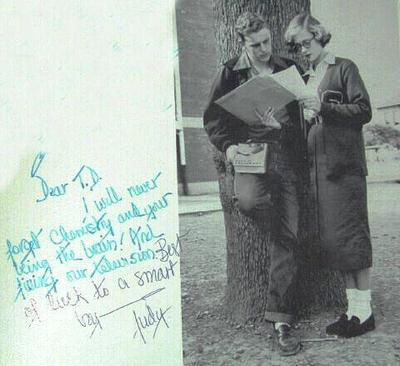 Dear T.D.
I will never
forget Chemistry and your
being the brain! And
fixing our television. Best
of luck to a smart
boy—
Judy